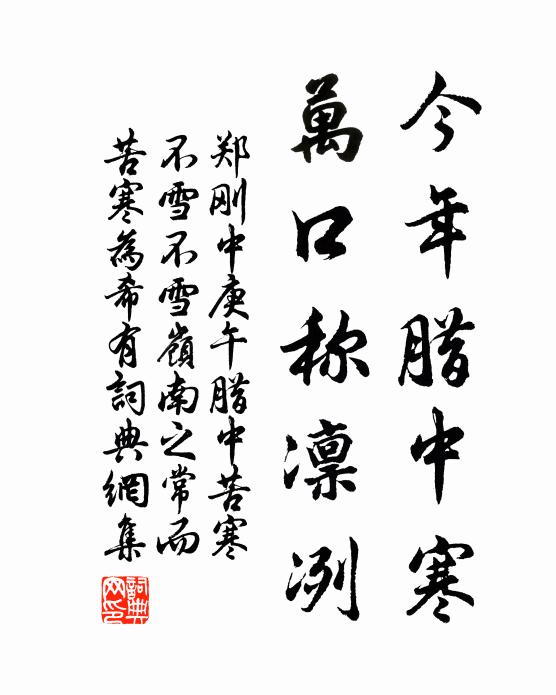 今年腊中寒
萬口称凛冽
郑刚中庚午腊中苦寒
不雪不雪嶺南之常而
苦寒為希有詞典網集
詞典网印